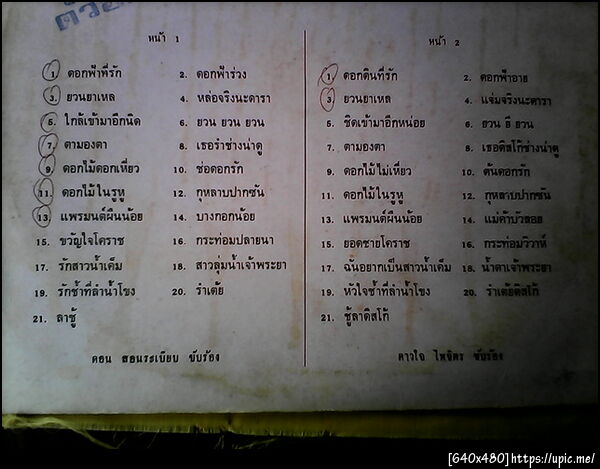 ตัวอ
หน้า 1
1. ดอกฟ้าที่รัก
2. ดอกฟ้าร่วง
3. ยวนยาเหล
4. หล่อจริงนะดารา
5. ใกล้เข้ามาอีกนิด
6. ยวน ยวน ยวน
7. ตามองตา
8. เธอรำช่างน่าดู
9. ดอกไม้ดอกเหี่ยว
10. ช่อดอกรัก
11. ดอกไม้ในรูหู
12. กุหลาบปากซัน
13. แพรมนต์ผืนน้อย
14. บางกอกน้อย
15. ขวัญใจโคราช
16. กระท่อมปลายนา
17. รักสาวน้ำเค็ม
18. สาวลุ่มน้ำเจ้าพระยา
19. รักช้ำที่ลำน้ำโขง
20. รำเต้ย
21. ลาชู้
ดอน สอนระเบียบ ขับร้อง
หน้า 2
1. ดอกดินที่รัก
2. ดอกฟ้าอาย
3. ยวนยาเหล
4. แจ่มจริงนะดารา
5. ชิดเข้ามาอีกหน่อย
6. ยวน ยี ยวน
7. ตามองตา
8. เธอดิสโก้ช่างน่าดู
9. ดอกไม้ไม่เหี่ยว
10. ต้นดอกรัก
11. ดอกไม้ในรูหู
12. กุหลาบปากซัน
13. แพรมนต์ผืนน้อย
14. แม่ค้าบัวลอย
15. ยอดชายโคราช
16. กระท่อมวิวาห์
17. ฉันอยากเป็นสาวน้ำเค็ม
18. น้ำตาเจ้าพระยา
19. หัวใจช้ำที่ลำน้ำโขง
20. รำเต้ยดิสโก้
21. ชู้ลาดิสโก้
ดาวใจ ไพจิตร ขับร้อง
[640x480]https://upic.me/